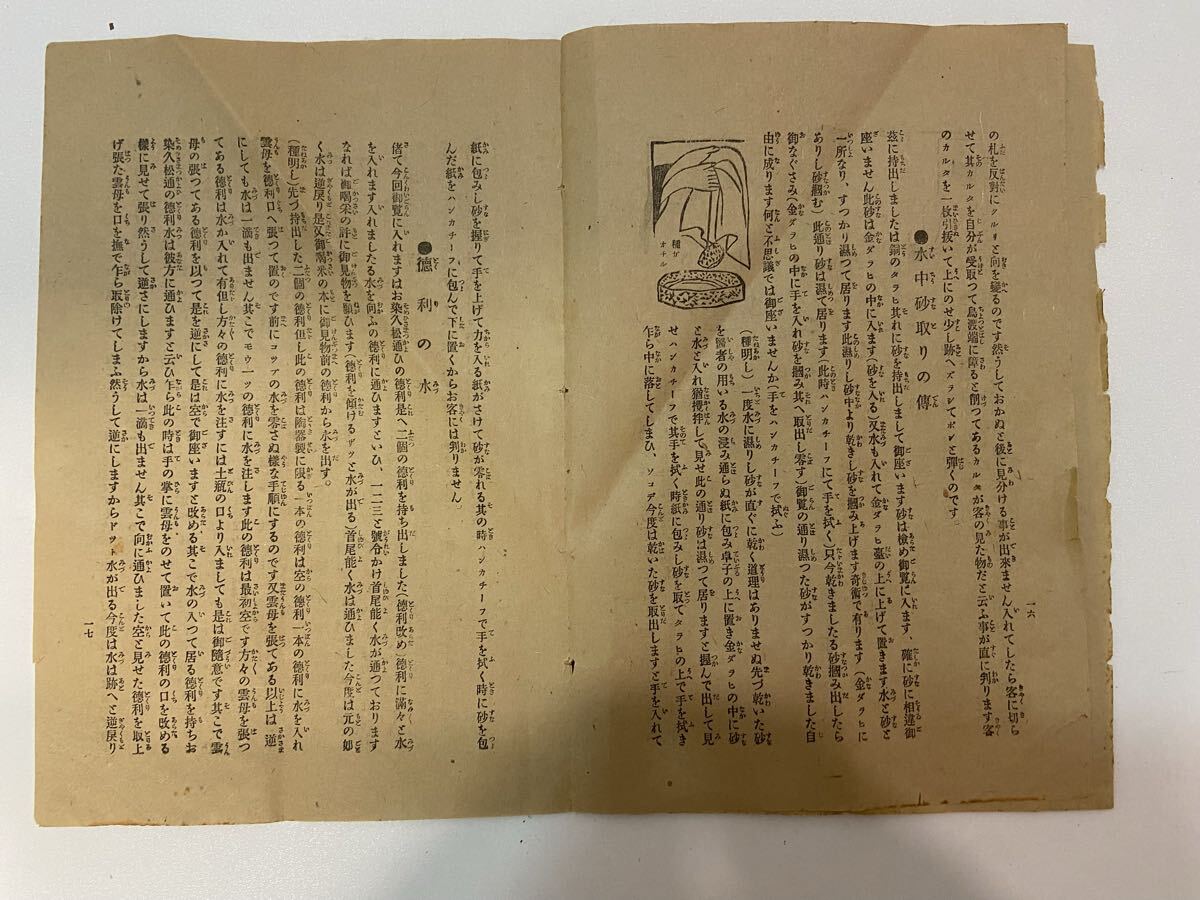 の札を反對にクルリと向を變るのです然うしておかぬと後に見分ける事が出來ません入れてしたら客に切ら
せて其カルタを自分が受取つて鳥渡端に障ると創つてあるカルタが客の見た物だと云ふ事が直に判ります客
のカルタを一枚引拔いて上にのせ少し跡へズラシてポンと彈くのです
●水中砂取りの傳
玆に持出しましたは銅のタラヒ其れに砂を持出しまして御座います砂は檢め御覽に入ます、確に砂に相違御
座いません此砂は金ダラヒの中に入ます(砂を入る)又水も入れて金ダラヒ臺の上に上げて置きます水と砂と
一所なり、すつかり濕つて居ります此濕りし砂中より乾きし砂を摑み上げます奇術で有ります(金ダラヒに
ありし砂摑む)此通り砂は濕て居ります(此時ハンカチーフにて手を拭く)只今乾きましたる砂摑み出したら
御なぐさみ(金ダラヒの中に手を入れ砂を摑み其へ取出し零す)御覽の通り濕つた砂がすつかり乾きました自
由に成ります何と不思議では御座いませんか(手をハンカチーフで拭ふ)
種ガ
オチル
(種明し)一度水に濕りし砂が直ぐに乾く道理はありませぬ先づ乾いた砂
を醫者の用いる水の浸み通らぬ紙に包み卓子の上に置き金ダラヒの中に砂
と水と入れ猶攪拌して見せ此の通り砂は濕つて居りますと握んで出して見
せハンカチーフで其手を拭く時紙に包みし砂を取てタラヒの上で手を拭き
乍ら中に落してしまひ、ソコデ今度は乾いた砂を取出しますと手を入れて
一六
紙に包みし砂を握りて手を上げて力を入る紙がさけて砂が零れる其の時ハンカチーフで手を拭く時に砂を包
んだ紙をハンカチーフに包んで下に置くからお客には判りません
●德利の水
偖て今回御覽に入れますはお染久松通ひの德利是へ二個の德利を持ち出しました(德利改め)德利に滿々と水
を入れます入れましたる水を向ふの德利に通ひますといひ、一二三と號令かけ首尾能く水が通つております
なれば御喝采の許に御見物を願ひます(德利を傾けるザッと水が出る)首尾能く水は通ひました今度は元の如
く水は逆戾り是又御喝采の本に御見物前の德利から水を出す。
(種明し)先づ持出した二個の德利但し此の德利は陶器製に限る一本の德利は空の德利一本の德利に水を入れ
雲母を德利口へ張つて置のです前にコップの水を零さぬ樣な手順にするのです又雲母を張てある以上は逆
にしても水は一滴も出ません其こでモウ一ッの德利に水を注します此の德利は最初空です方々の雲母を張つ
てある德利は水か入れて有但し方々の德利に水を注すには土瓶の口より入ましても是は御隨意です其こで雲
母の張つてある德利を以つて是を逆にして是は空で御座いますと改める其こで水の入つて居る德利を持ちお
染久松通の德利水は彼方に通ひますと云ひ乍ら此の時は手の掌に雲母をのせて置いて此の德利の口を改める
樣に見せて張り然うして逆さにしますから水は一滴も出ません其こで向に通ひました空と見せた德利を取上
げ張た雲母を口を撫で乍ら取除けてしまふ然うして逆にしますからドット水が出る今度は水は跡へと逆戾り
一七